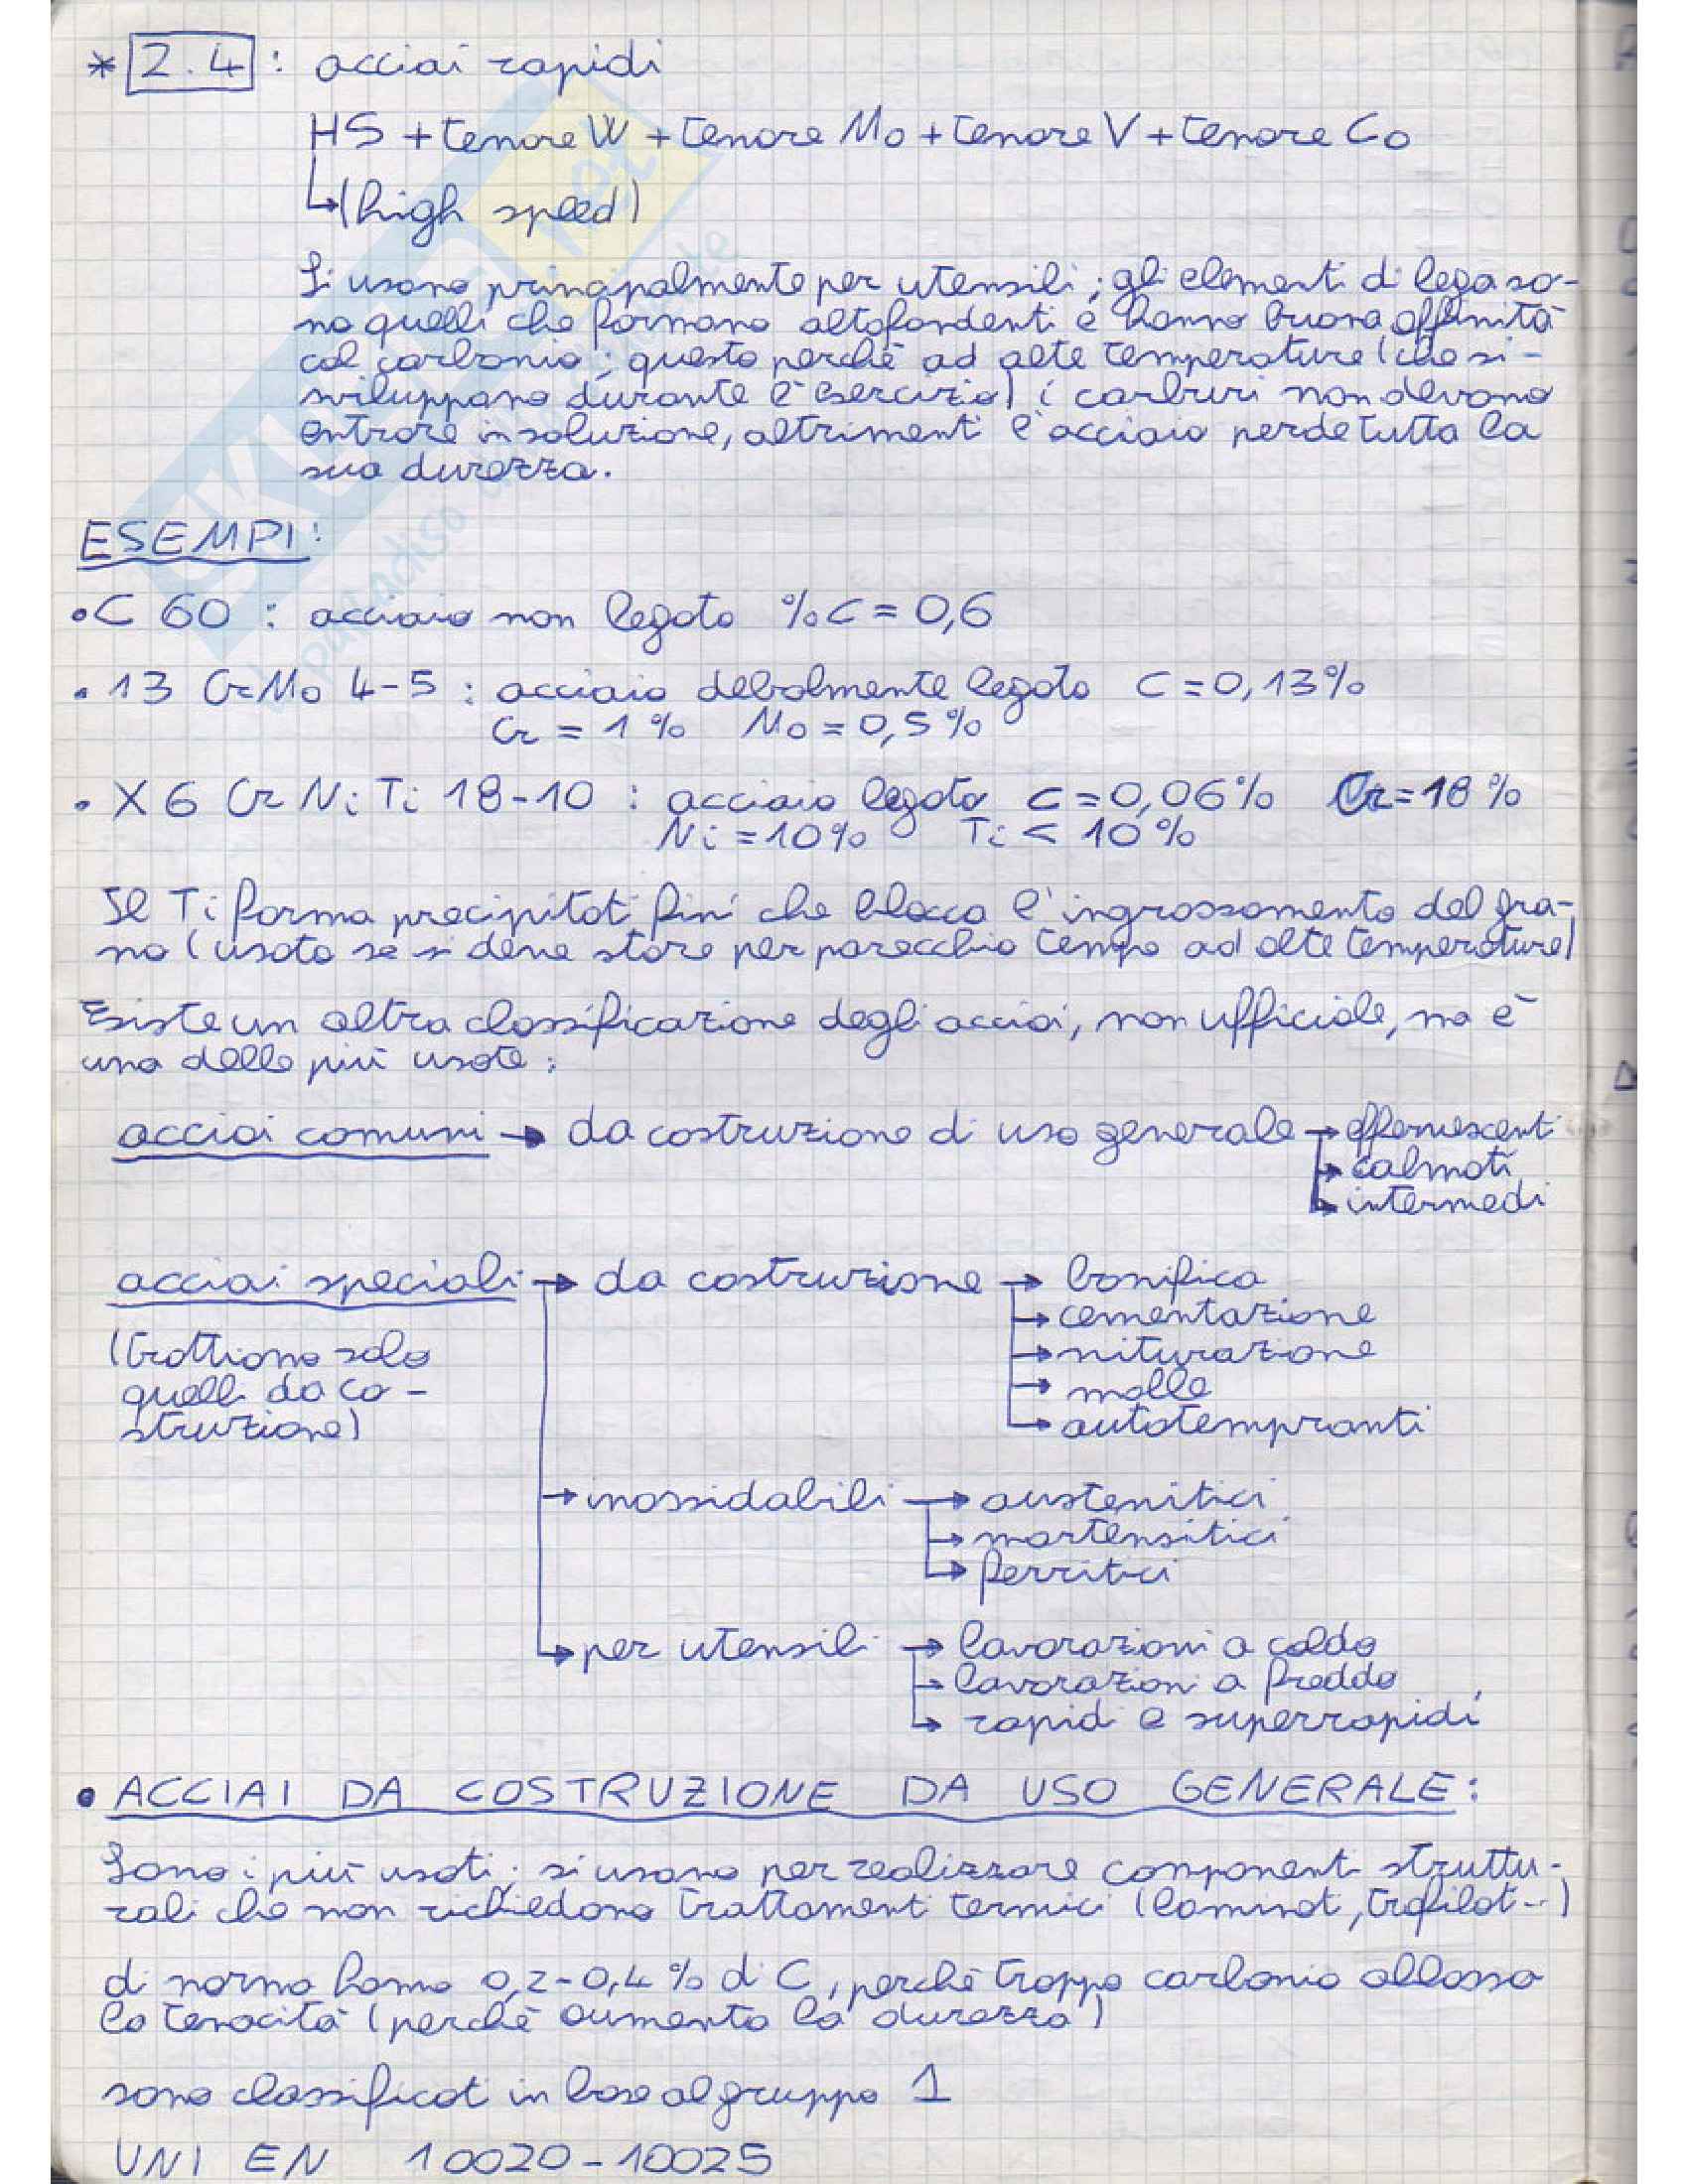 * 2.4 : acciai rapidi
HS + tenore W + tenore Mo + tenore V + tenore Co
(high speed)
Si usano principalmente per utensili; gli elementi di lega so-
no quelli che formano altofondenti e hanno buona affinità
col carbonio; questo perchè ad alte temperature (che si-
sviluppano durante l'esercizio) i carburi non devono
entrare in soluzione, altrimenti l'acciaio perde tutta la
sua durezza.
ESEMPI:
• C 60 : acciaio non legato %C = 0,6
• 13 CrMo 4-5 : acciaio debolmente legato C = 0,13%
Cr = 1% Mo = 0,5%
• X6 CrNiTi 18-10 : acciaio legato C = 0,06% Cr = 18%
Ni = 10% Ti < 10%
Il Ti forma precipitati fini che blocca l'ingrossamento del gra-
no (usato se si deve stare per parecchio tempo ad alte temperature)
Esiste un altra classificazione degli acciai, non ufficiale, ma è
una delle più usate:
acciai comuni → da costruzione di uso generale → effervescenti
→ calmati
→ intermedi
acciai speciali → da costruzione → bonifica
→ cementazione
(trattiamo solo → niturazione
quelli da co- → molle
struzione) → autotempranti
→ inossidabili → austenitici
→ martensitici
→ ferritici
→ per utensili → lavorazioni a caldo
→ lavorazioni a freddo
→ rapidi e superrapidi
• ACCIAI DA COSTRUZIONE DA USO GENERALE:
Sono i più usati; si usano per realizzare componenti struttu-
rali che non richiedono trattamenti termici (laminati, trafilati...)
di norma hanno 0,2-0,4% di C, perchè troppo carbonio abbassa
la tenacità (perchè aumenta la durezza)
sono classificati in base al gruppo 1
UNI EN 10020-10025